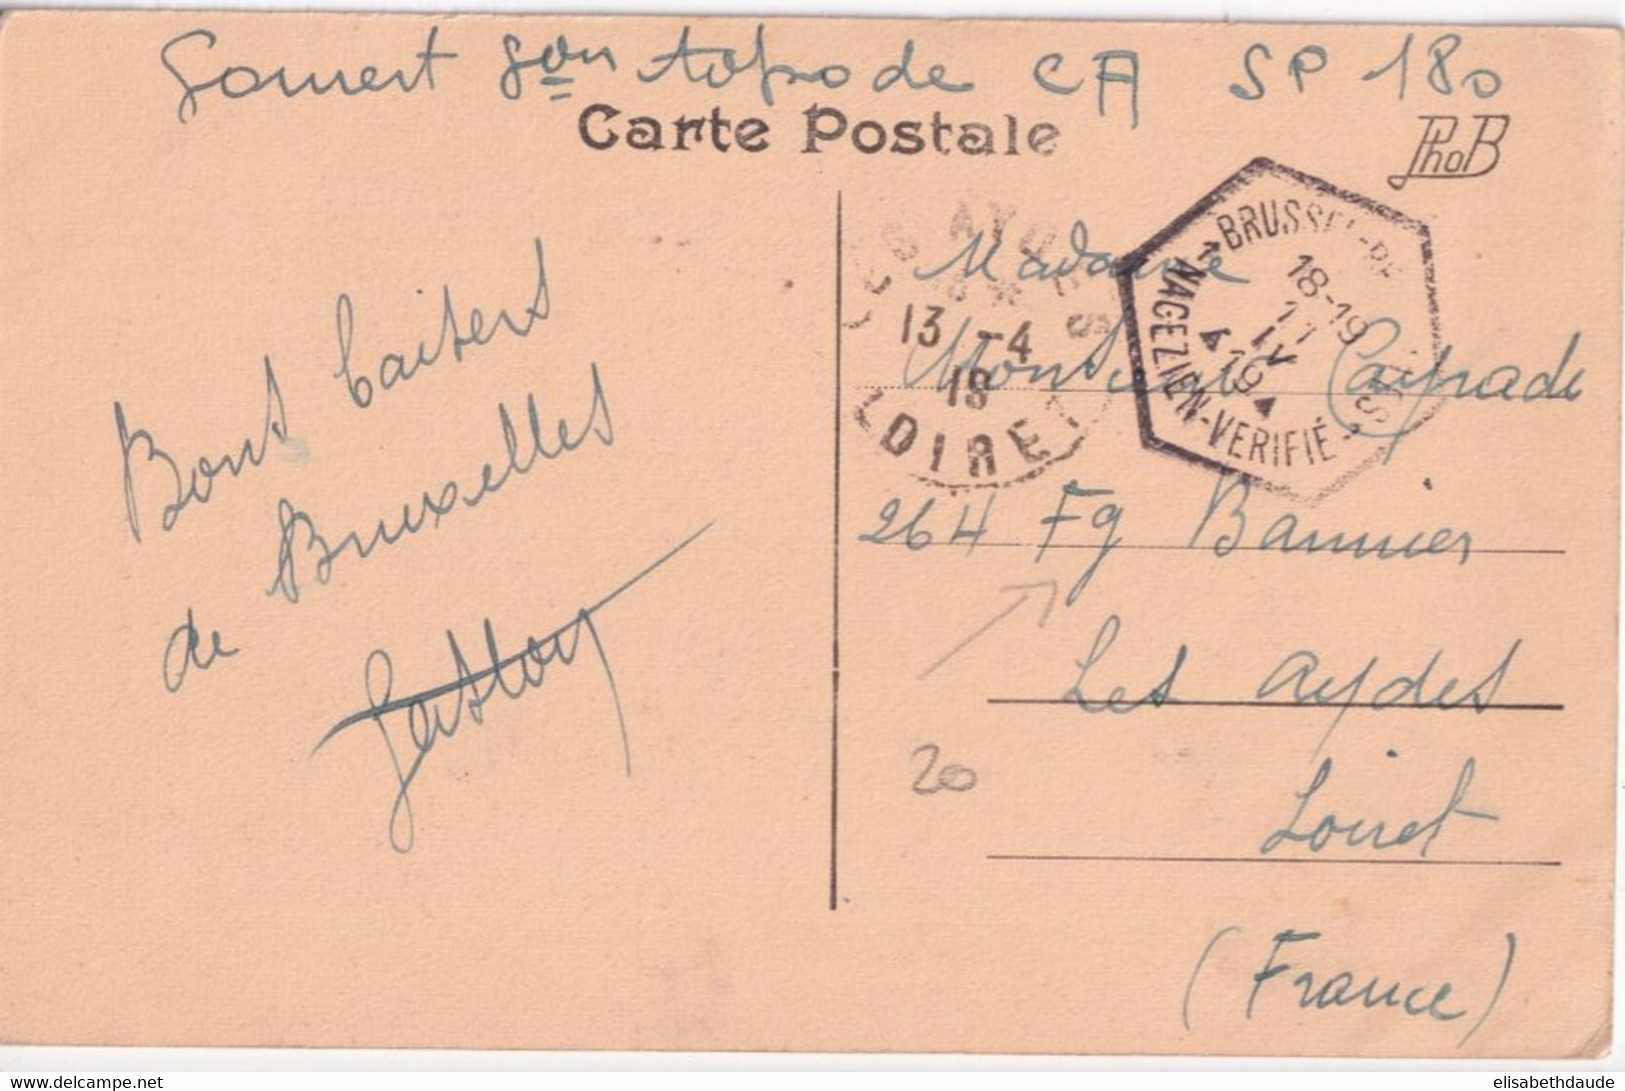 Gomert son Autpo de CA SP 180
Carte Postale
PhoB
Bons baisers
de Bruxelles
Gaston
BRUSSEL-
18-19
11
IV
19
NAGEZIEN-VERIFIÉ
LES AYDES
13 -4
19
LOIRET
Madame
264 Fg Bannier
Les Aydes
Loiret
(France)
20
www.delcampe.net
elisabethdaude